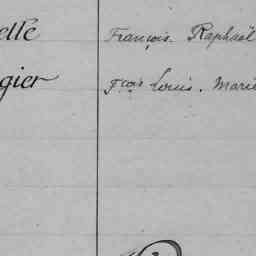 elle François. Raphaël
gier fçois Louis. Marie